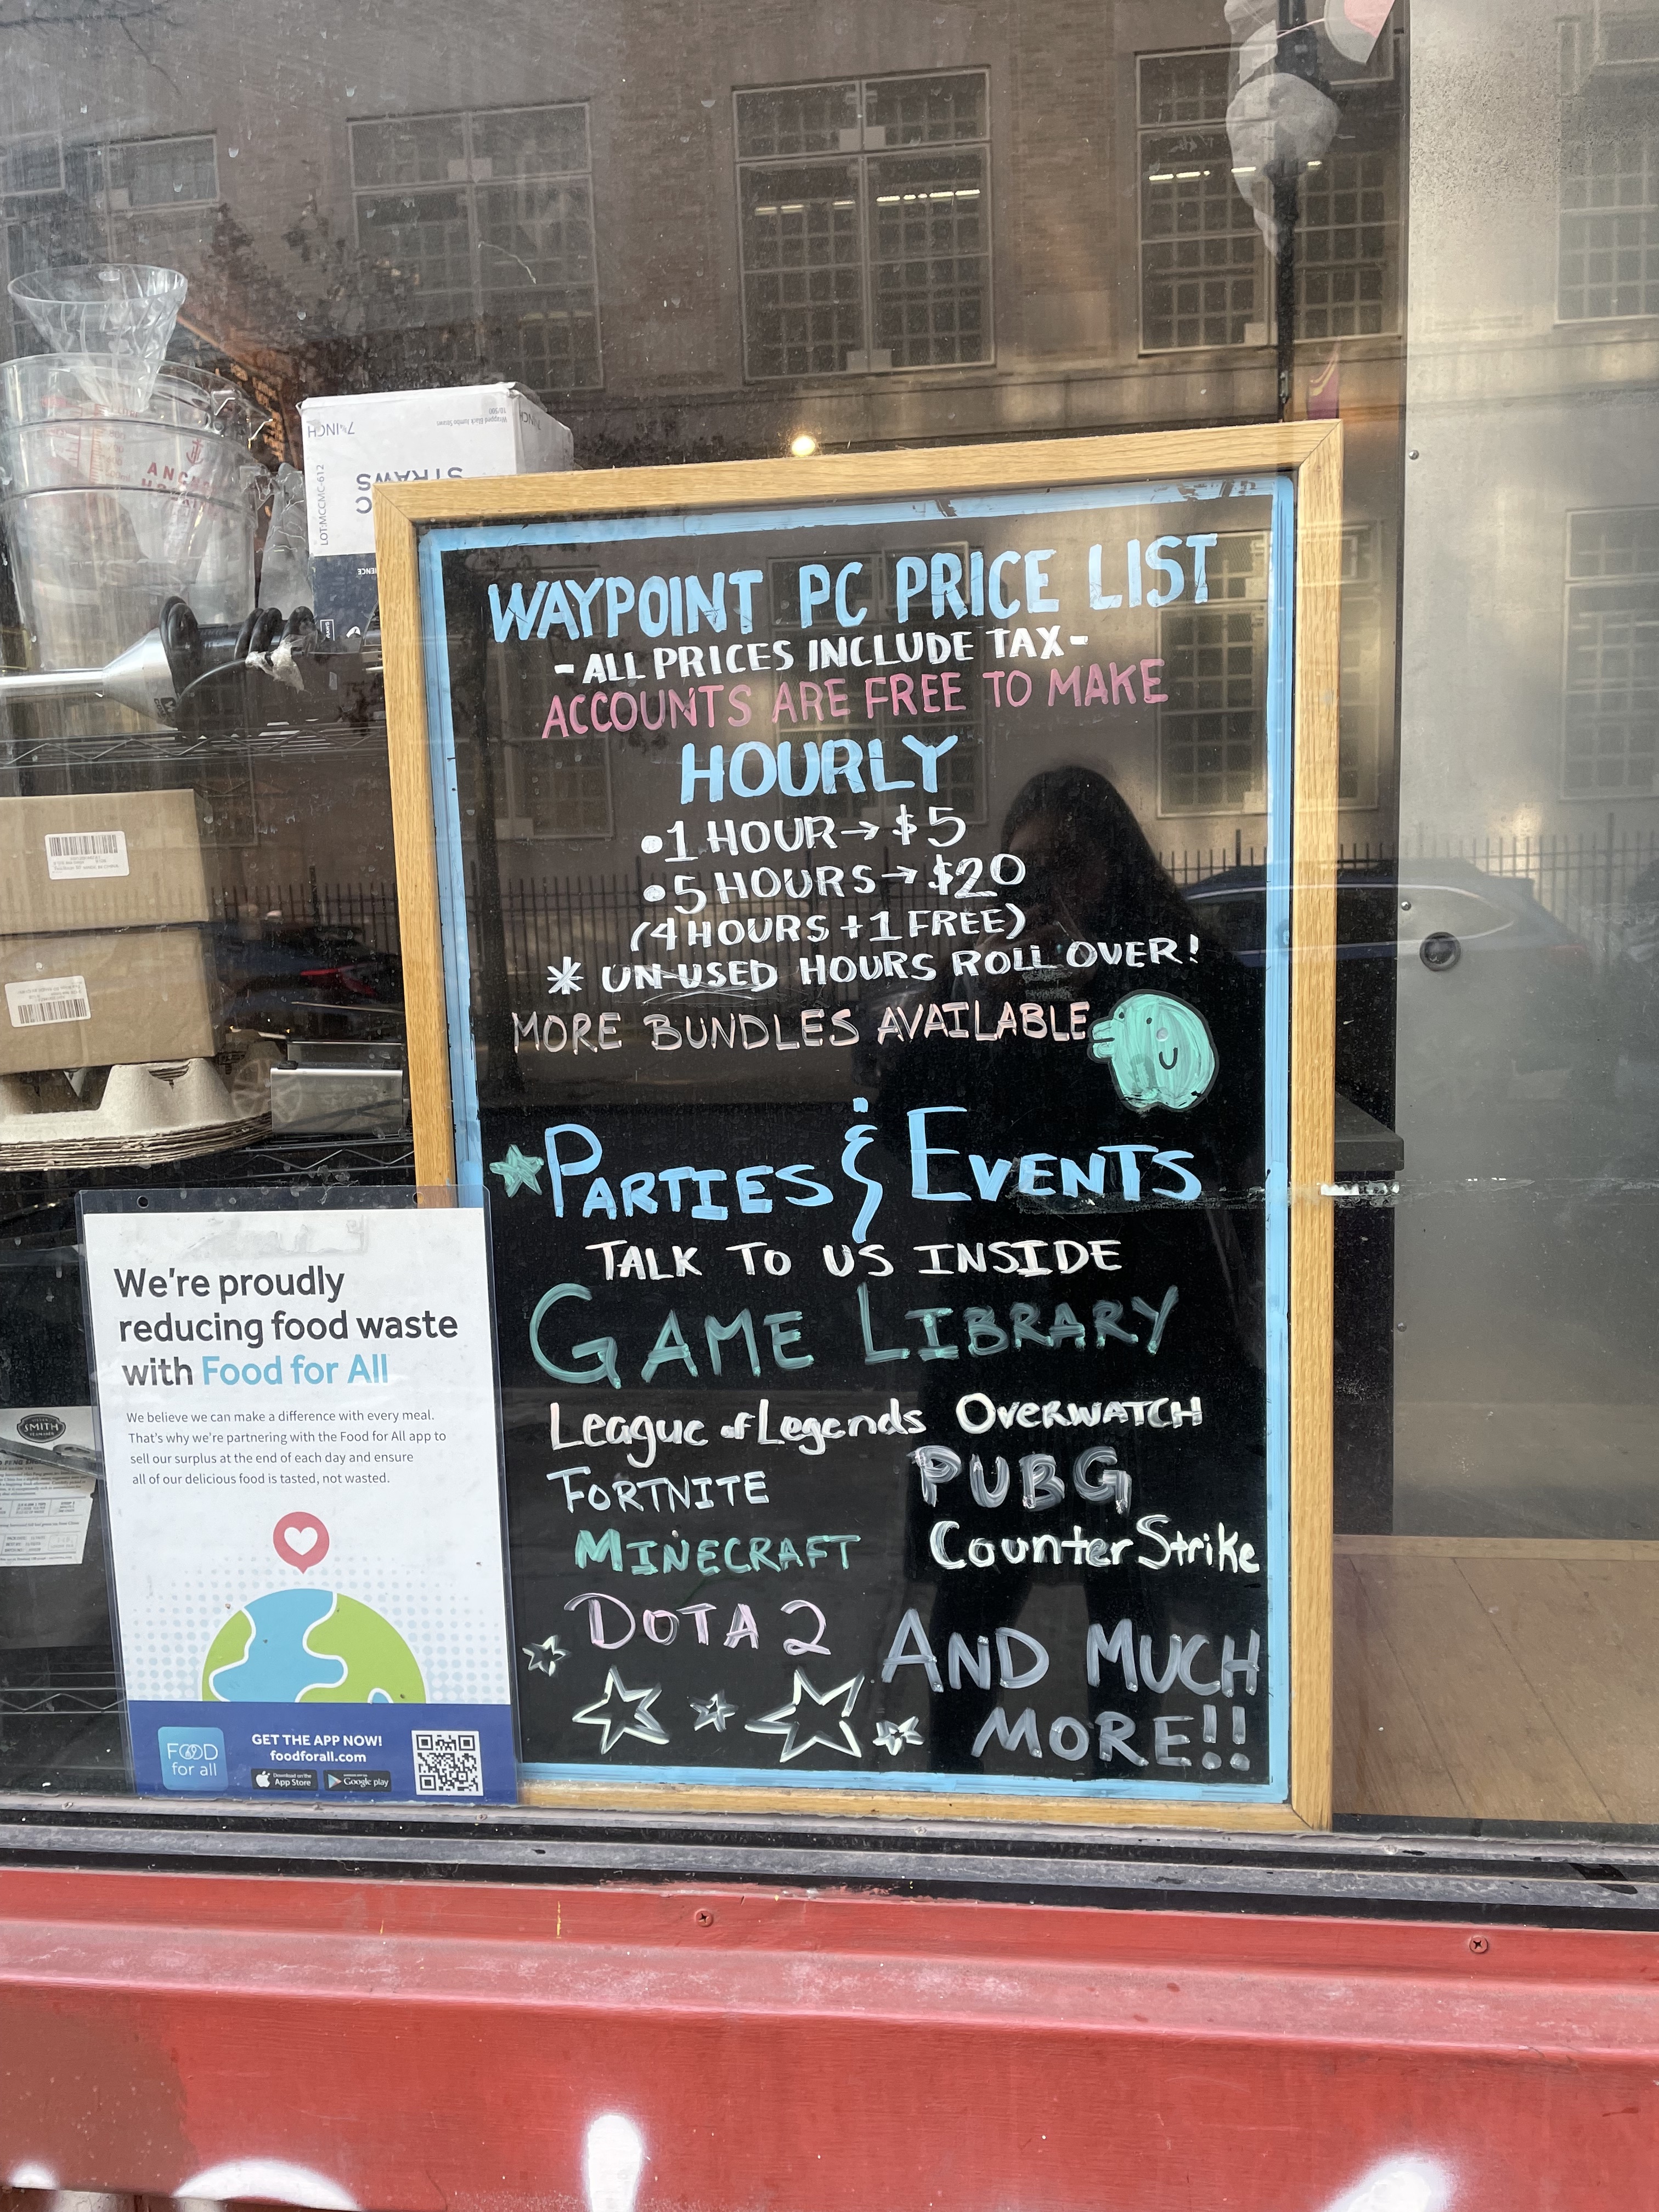 WAYPOINT PC PRICE LIST
- ALL PRICES INCLUDE TAX -
ACCOUNTS ARE FREE TO MAKE
HOURLY
• 1 HOUR → $5
• 5 HOURS → $20
(4 HOURS + 1 FREE)
* UN-USED HOURS ROLL OVER!
MORE BUNDLES AVAILABLE
PARTIES & EVENTS
TALK TO US INSIDE
GAME LIBRARY
League of Legends OVERWATCH
FORTNITE PUBG
MINECRAFT Counter Strike
DOTA 2 AND MUCH
MORE!!
We're proudly
reducing food waste
with Food for All
We believe we can make a difference with every meal.
That's why we're partnering with the Food for All app to
sell our surplus at the end of each day and ensure
all of our delicious food is tasted, not wasted.
FOOD
for all
GET THE APP NOW!
foodforall.com
Download on the
App Store
Google play
7¾INCH
STRAWS
LOT:MCCMC-612
SMITH